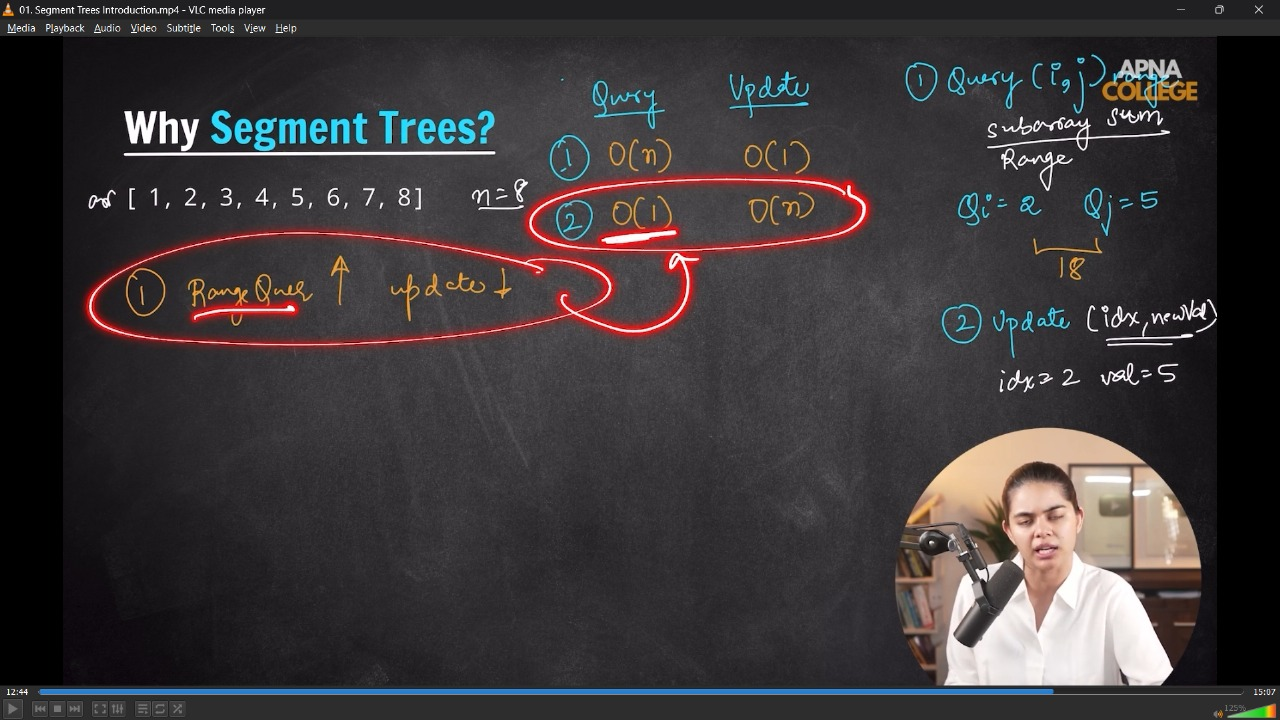 01. Segment Trees Introduction.mp4 - VLC media player
Media Playback Audio Video Subtitle Tools View Help
Why Segment Trees?
arr [ 1, 2, 3, 4, 5, 6, 7, 8 ] n=8
Query Update
① O(n) O(1)
② O(1) O(n)
① Range Quer ↑ update ↓
① Query (i, j) range
APNA
COLLEGE
subarray sum
Range
Qi = 2 Qj = 5
18
② Update (idx, newVal)
idx = 2 val = 5
12:44 15:07
125%